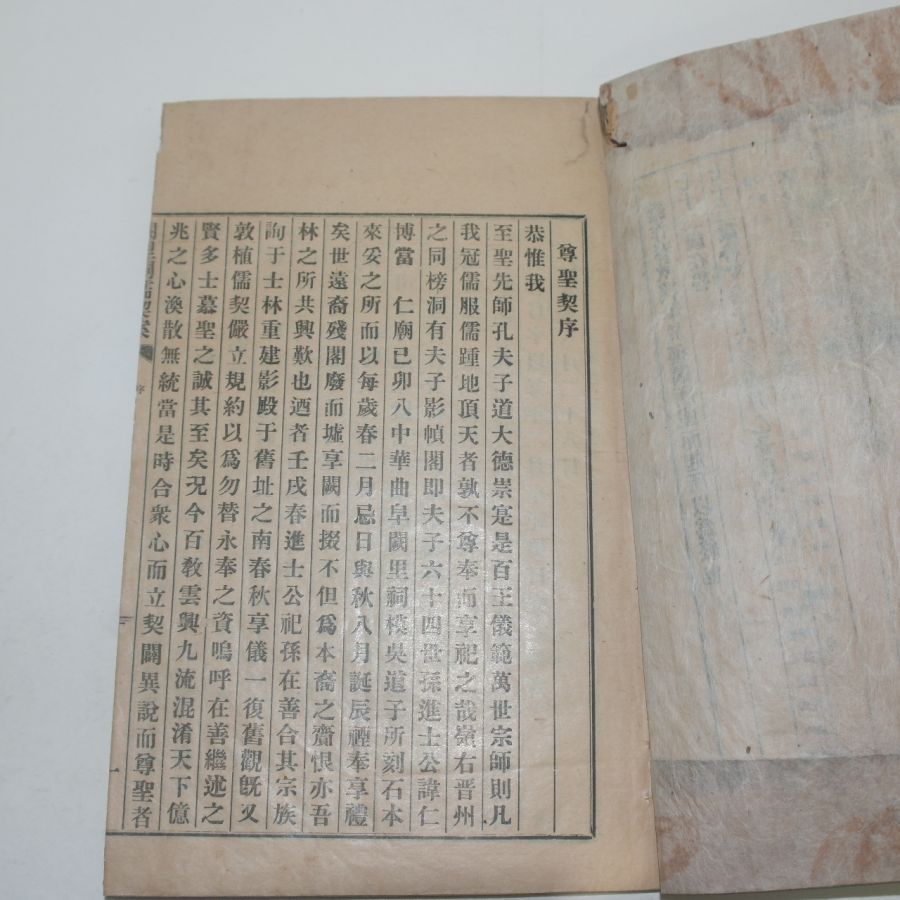 尊聖契序
恭惟我
至聖先師孔夫子道大德崇寔是百王儀範萬世宗師則凡
我冠儒服儒踵地頂天者孰不尊奉而享祀之哉嶺右晋州
之同榜洞有夫子影幀閣即夫子六十四世孫進士公諱仁
博當 仁廟已卯八中華曲阜闕里祠模吳道子所刻石本
來妥之所而以每歲春二月忌日與秋八月誕辰禋奉享禮
矣世遠裔殘閣廢而墟享闕而掇不但爲本裔之齎恨亦吾
林之所共興歎也迺者壬戌春進士公祀孫在善合其宗族
詢于士林重建影殿于舊址之南春秋享儀一復舊觀旣又
敦植儒契嚴立規約以爲勿替永奉之資嗚呼在善繼述之
賢多士慕聖之誠其至矣況今百敎雲興九流混淆天下億
兆之心渙散無統當是時合衆心而立契闢異說而尊聖者
序
一